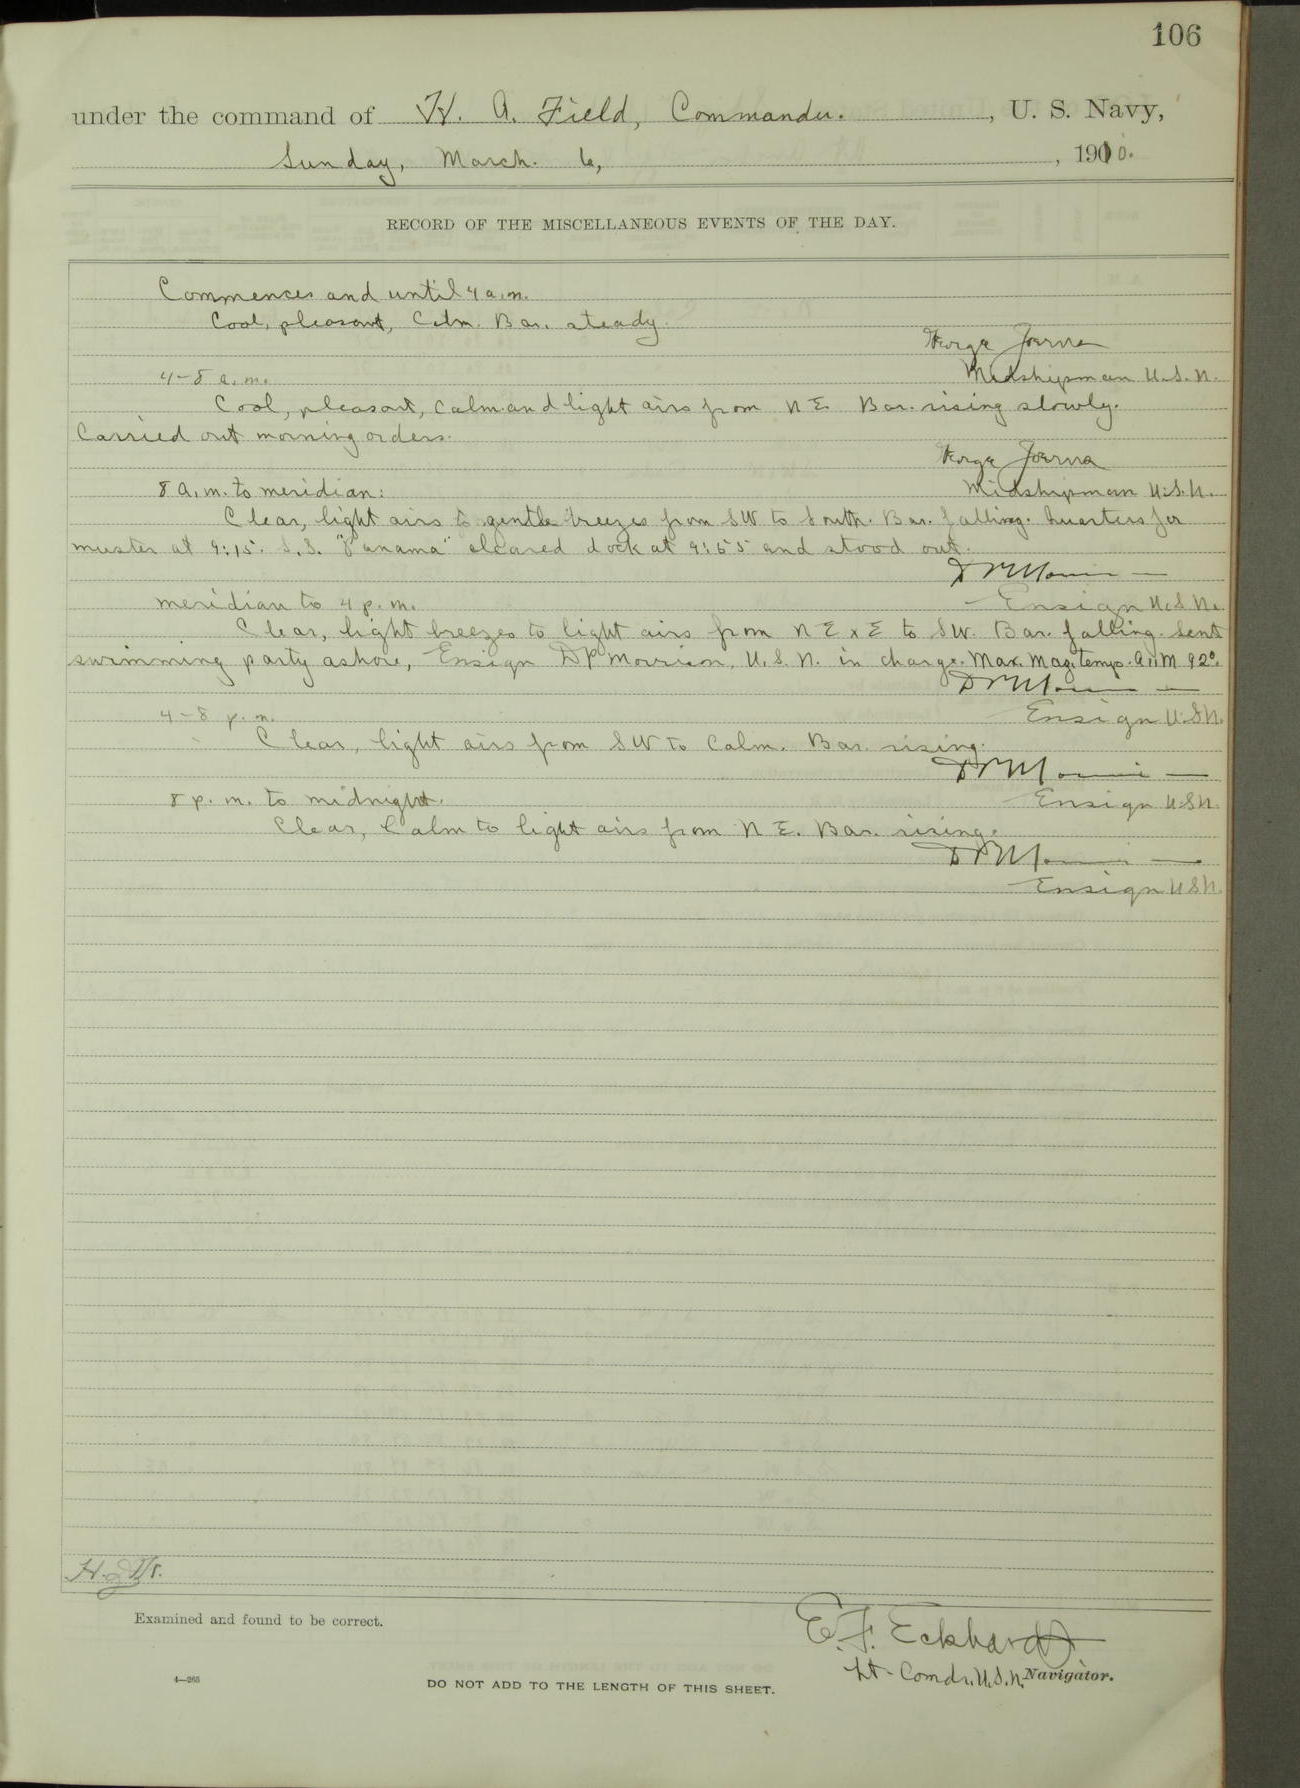 106
under the command of H. A. Field, Commander. , U. S. Navy,
Sunday, March. 6, , 1910.
RECORD OF THE MISCELLANEOUS EVENTS OF THE DAY.
Commences and until 4 a.m.
Cool, pleasant, Calm. Bar. steady.
George Joerns
4-8 a.m. Midshipman U.S.N.
Cool, pleasant, calm and light airs from NE Bar. rising slowly.
Carried out morning orders.
George Joerns
8 a.m. to meridian: Midshipman U.S.N.
Clear, light airs to gentle breezes from SW to South. Bar. falling. Quarters for
muster at 9:15. S.S. "Panama" cleared dock at 9:55 and stood out.
D P Morrison
meridian to 4 p.m. Ensign U.S.N.
Clear, light breezes to light airs from NE x E to SW. Bar. falling. Sent
swimming party ashore, Ensign DP Morrison, U.S.N. in charge. Max. Mag. temp. A11M 92°.
D P Morrison
4-8 p.m. Ensign U.S.N.
Clear, light airs from SW to Calm. Bar. rising.
D P Morrison
8 p.m. to midnight. Ensign U.S.N.
Clear, Calm to light airs from NE. Bar. rising.
D P Morrison
Ensign U.S.N.
Examined and found to be correct.
E. F. Eckhardt
Lt-Comdr. U.S.N. Navigator.
4—265
DO NOT ADD TO THE LENGTH OF THIS SHEET.